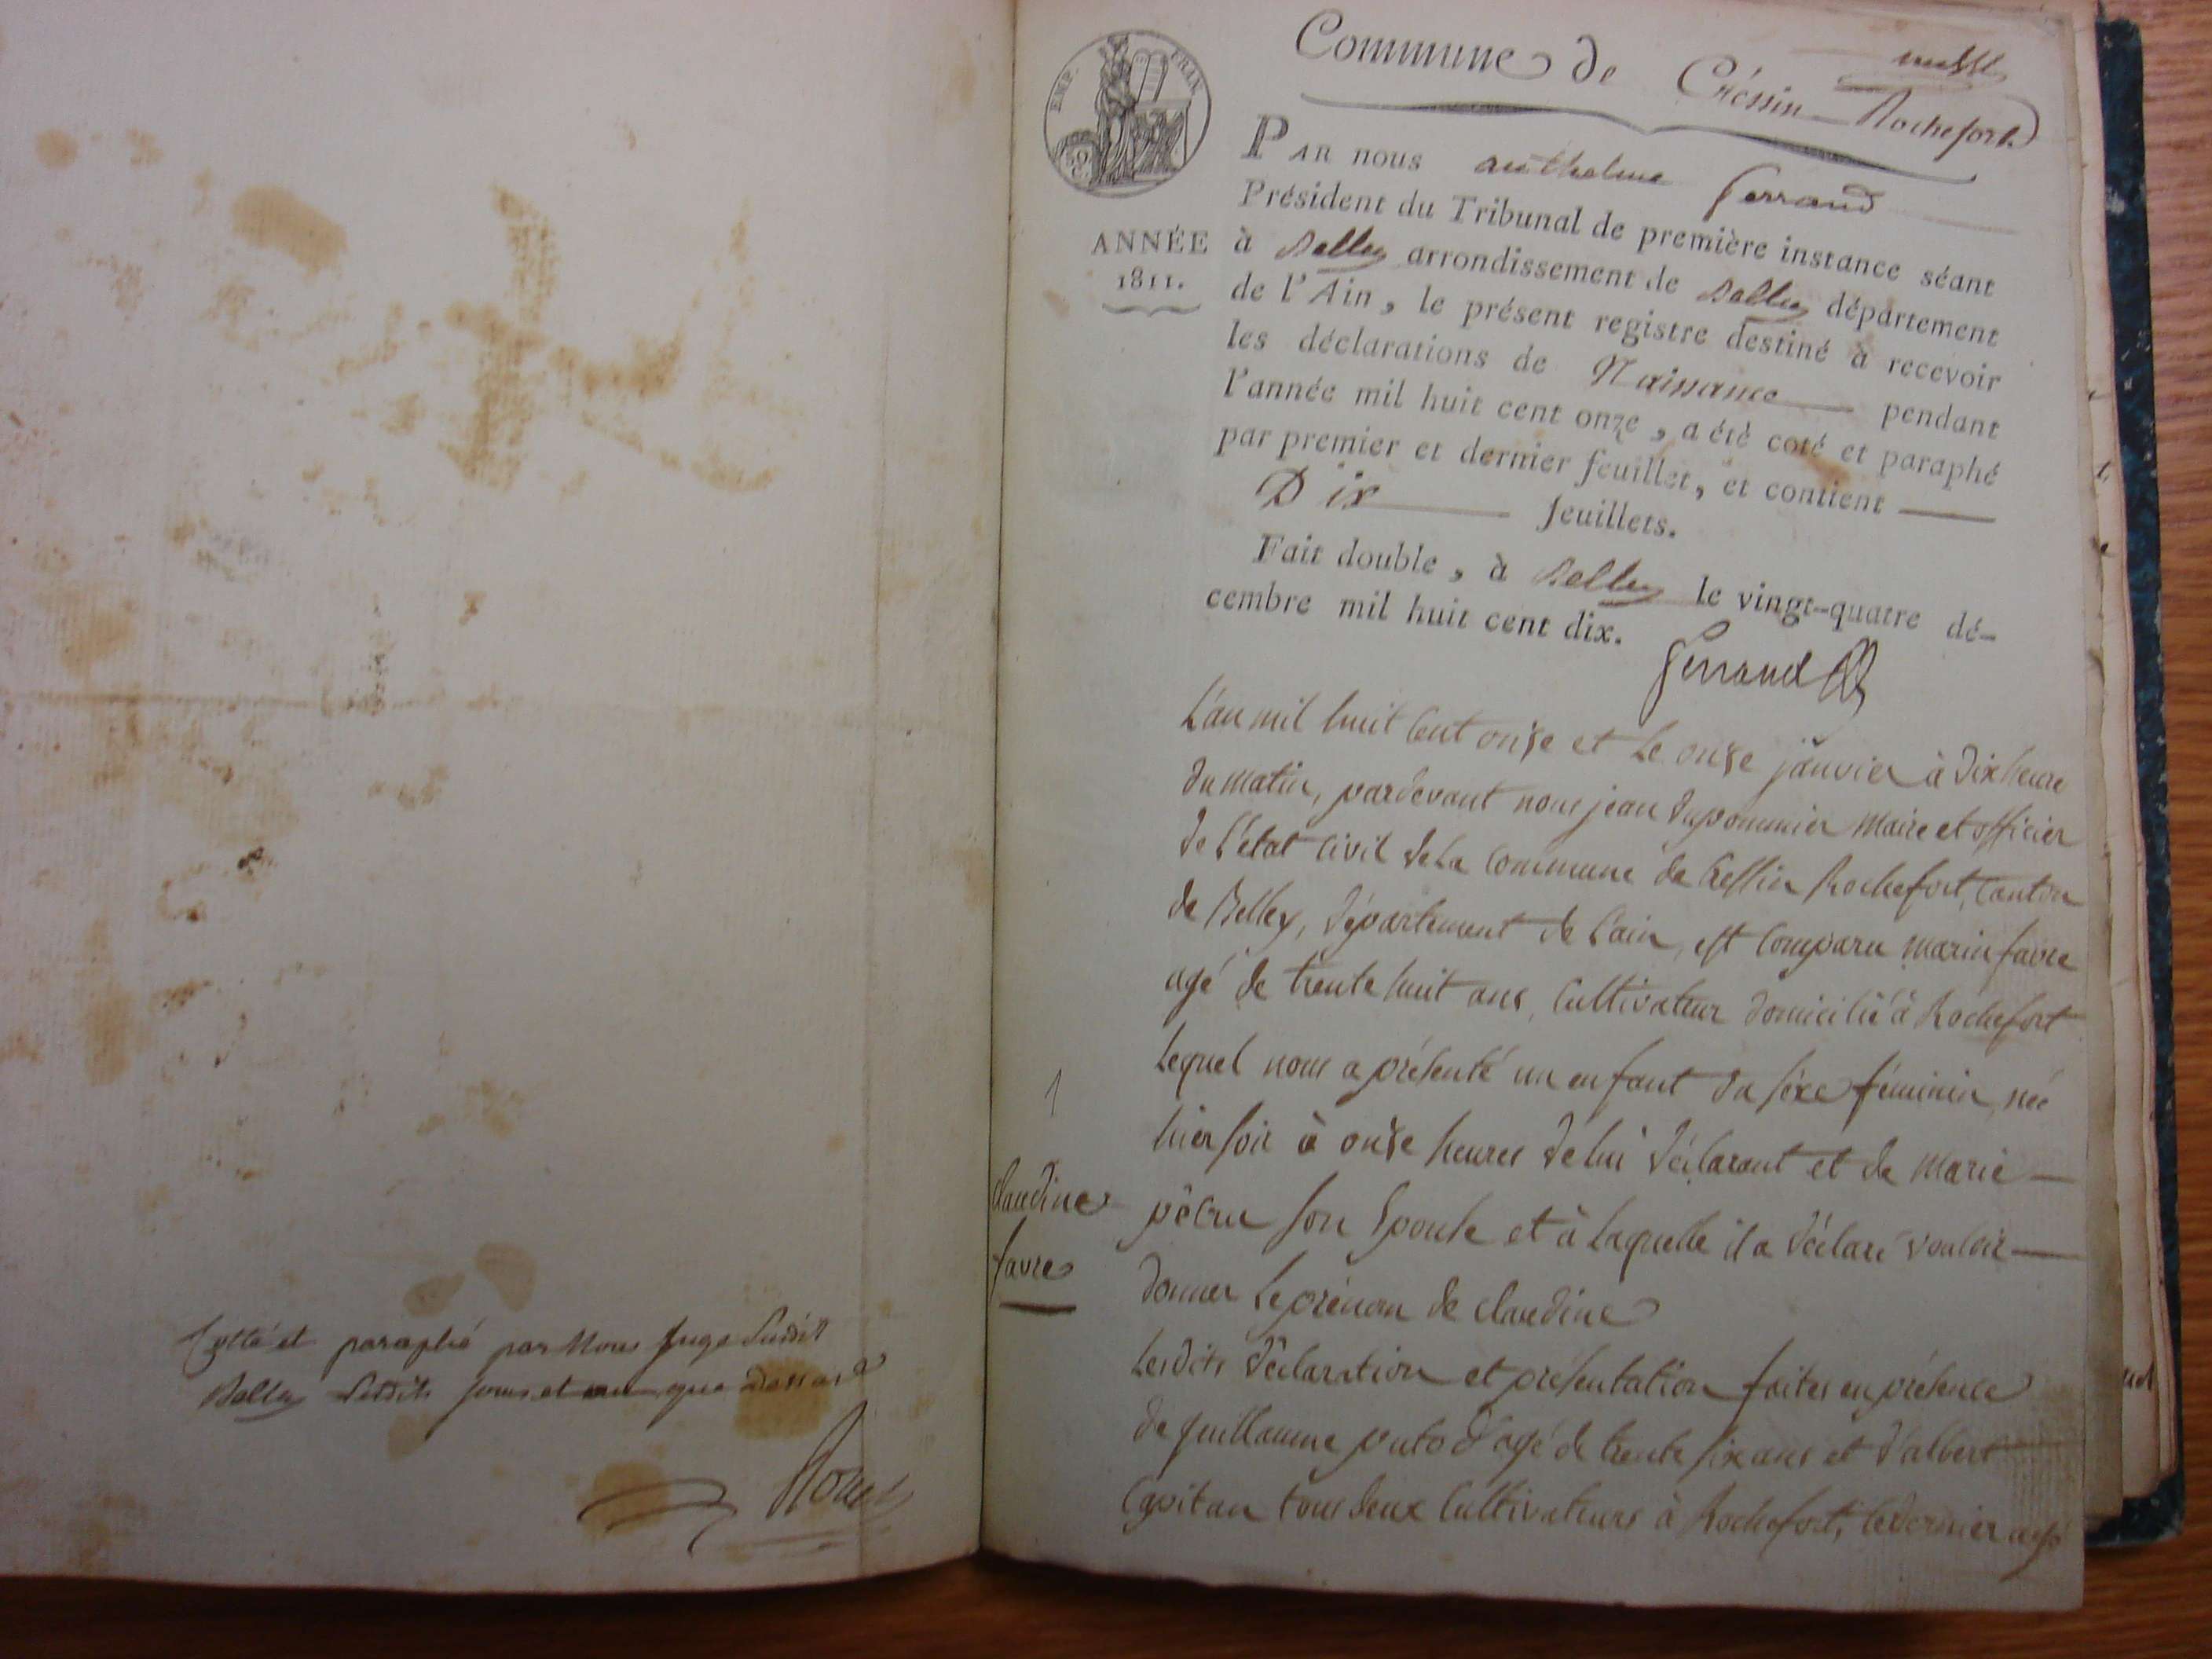 Cotté et paraphé par Nous Juge Susdit
Belley Susdits jour et an que dessus
EMP. FRAN.
50 C.
Commune de Créssin Rochefort
PAR nous anthelme Ferrand
Président du Tribunal de première instance séant
ANNÉE
1811.
à Belley arrondissement de Belley département
de l'Ain, le présent registre destiné à recevoir
les déclarations de Naissance pendant
l'année mil huit cent onze, a été coté et paraphé
par premier et dernier feuillet, et contient
Dix feuillets.
Fait double, à Belley le vingt-quatre dé-
cembre mil huit cent dix.
Ferrand
L'an mil huit cent onze et le onze janvier à dix heure
du matin, pardevant nous jean dupommier maire et officier
de l'état civil de la commune de Cressin Rochefort, canton
de Belley, département de l'ain, est comparu marin favre
agé de trente huit ans, cultivateur domicilié à Rochefort
Lequel nous a présenté un enfant du séxe féminin, née
hier soir à onze heures de lui déclarant et de marie
son Epouse et à laquelle il a déclaré vouloir
donner le prénom de claudine
1
claudine
favre
Lesdits déclaration et présentation faites en présence
de guillaume putod agé de trente six ans et d'albert
Capitan tous deux cultivateurs à Rochefort, le dernier agé